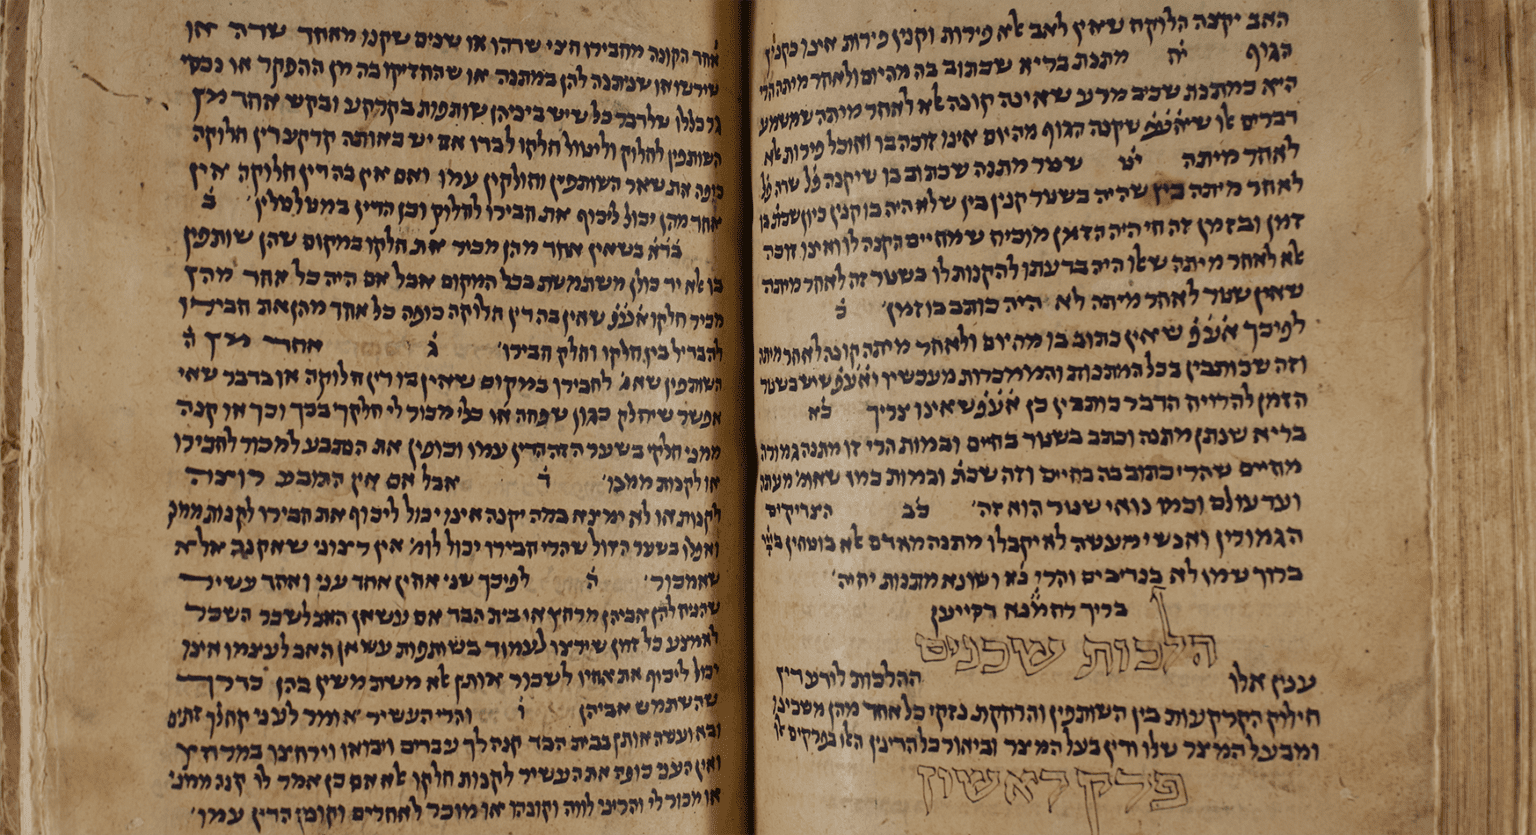 האב יקנה הלוקח שאין לאב אלא פירות וקנין פירות אינו כקנין
הגוף יח מתנת בריא שכתוב בה מהיום ולאחר מיתה הרי
היא כמתנת שכיב מרע שאינה קונה אלא לאחר מיתה שמשמע
דברים אלו שאעפ שקנה הגוף מהיום אינו זוכה בו ואוכל פירות אלא
לאחר מיתה יט שטר מתנה שכתוב בו שיקנה פל שדה פל
לאחר מיתה בין שהיה בשטר קנין בין שלא היה בו קנין כיון שכת בו
זמן ובזמן זה חי היה הזמן מוכיח שמחיים הקנה לו ואינו זוכה
אלא לאחר מיתה שאלו היה בדעתו להקנות לו בשטר זה לאחר מיתה
שאין שטר לאחר מיתה לא היה כותב בו זמן׳ כ
לפיכך אעפ שאין כתוב בו מהיום ולאחר מיתה קונה לאחר מיתה
וזה שכותבין בכל המתנות והממכרות מעכשיו ואעפ שיש בשטר
הזמן להרויח הדבר כותבין כן אעפ שאינו צריך כא
בריא שנתן מתנה וכתב בשטר בחיים ובמות הרי זו מתנה גמורה
מחיים שהרי כתוב בה בחיים וזה שכת ובמות כמו שאומ׳ מעתה
ועד עולם וכמו נואי שטר הוא זה׳ כב הצדיקים
הגמורין ואנשי מעשה לא יקבלו מתנה מאדם אלא בוטחין ביי
ברוך שמו לא בנדיבים והרי נא ושונא מתנות יחיה׳
בריך רחמנא דסייען
הלכות שכנים
ענין אלו ההלכות לידע דין
חילוק הקרקעות בין השותפין והרחקת נזקי כל אחד מהן משכינו
ומבעל המצר שלו ודין בעל המצר וביאור כל הדינין האלו בפרקים אלו
פרק ראשון
אחר הקונה מחבירו חצי שדהו או שנים שקנו מאחד שדה או
שירשו או שניתנה להן במתנה או שהחזיקו בה מן ההפקר או נכסי
גר כללו של דבר כל שיש ביניהן שותפות בקרקע ובקש אחד מן
השותפין לחלוק וליטול חלקו לבדו אם יש באותה קרקע דין חלוקה
כופה את שאר השותפין וחולקין עמו ואם אין בה דין חלוקה אין
אחד מהן יכול לכוף את חבירו לחלוק וכן הדין במטלטלין׳ ב
בדא בשאין אחד מהן מכיר את חלקו במקום שהן שותפין
בו אלא יד כולן משתמשת בכל המקום אבל אם היה כל אחד מהן
מכיר חלקו אעפ שאין בה דין חלוקה כופה כל אחד מהן את חבירו
להבדיל בין חלקו וחלק חבירו׳ ג אחד מן ה
השותפין שאמ׳ לחבירו במקום שאין בו דין חלוקה או בדבר שאי
אפשר שיחלק כגון שפחה או כלי מכור לי חלקך בכך וכך או קנה
ממני חלקי בשער הזה הדין עמו וכופין את הנתבע למכור לחבירו
או לקנות ממנו׳ ד אבל אם אין התובע רוצה
לקנות או לא ימצא במה יקנה אינו יכול לכוף את חבירו לקנות ממנו
ואפלו בשער הזול שהרי חבירו יכול לומ׳ אין רצוני שאקנה אלא
שאמכור׳ ה לפיכך שני אחין אחד עני ואחד עשיר
שהניח להן אביהן מרחץ או בית הבד אם עשאן האב לשכר השכר
לאמצע כל זמן שירצו לעמוד בשותפות עשאן האב לעצמו אינו
יכול לכוף את אחיו לשכור אותן אלא משתמשין בהן כדרך
שהשתמש אביהן ו והרי העשיר אומר לעני קח לך זתים
ובא ועשה אותן בבית הבד קנה לך עבדים ויבואו וירחצו במרחץ
ואין העני כופה את העשיר לקנות חלקו אלא אם כן אמר לו קנה ממני
או מכור לי והריני לווה וקונה או מוכר לאחרים וקונה הדין עמו׳